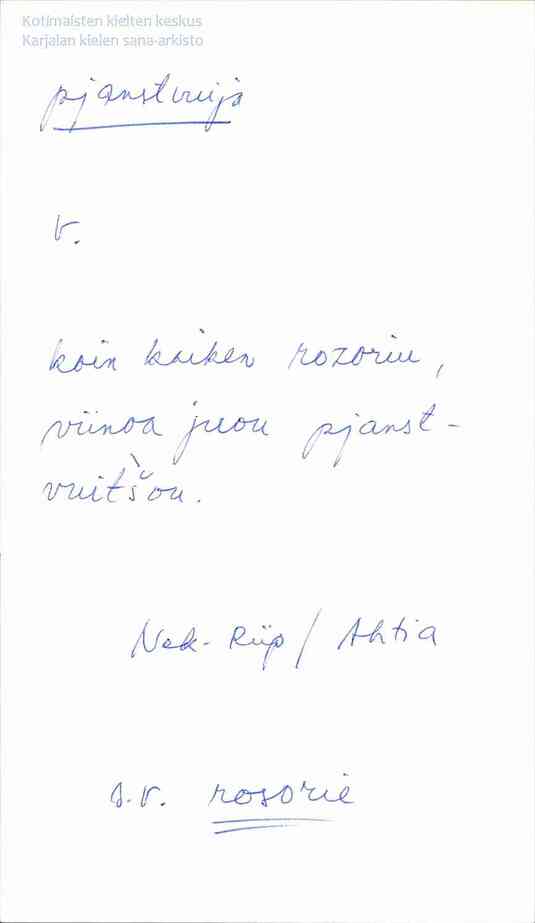 Kotimaisten kielten keskus
Karjalan kielen sana-arkisto
pjanstvuija
v.
koin kaiken rozoriu,
viinoa juou pjanst-
vuitšou.
Nek-Riip / Ahtia
s.v. rosorie